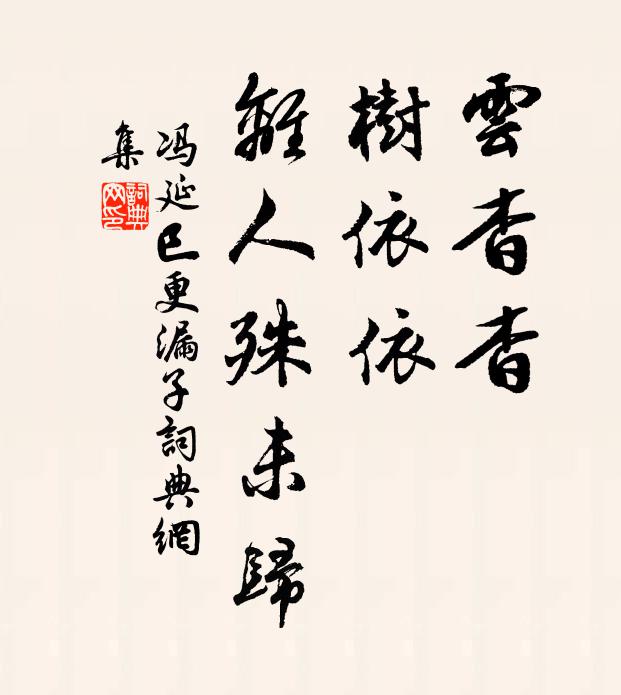 雲杳杳
樹依依
離人殊未歸
冯延巳更漏子詞典網
集
詞典
网印